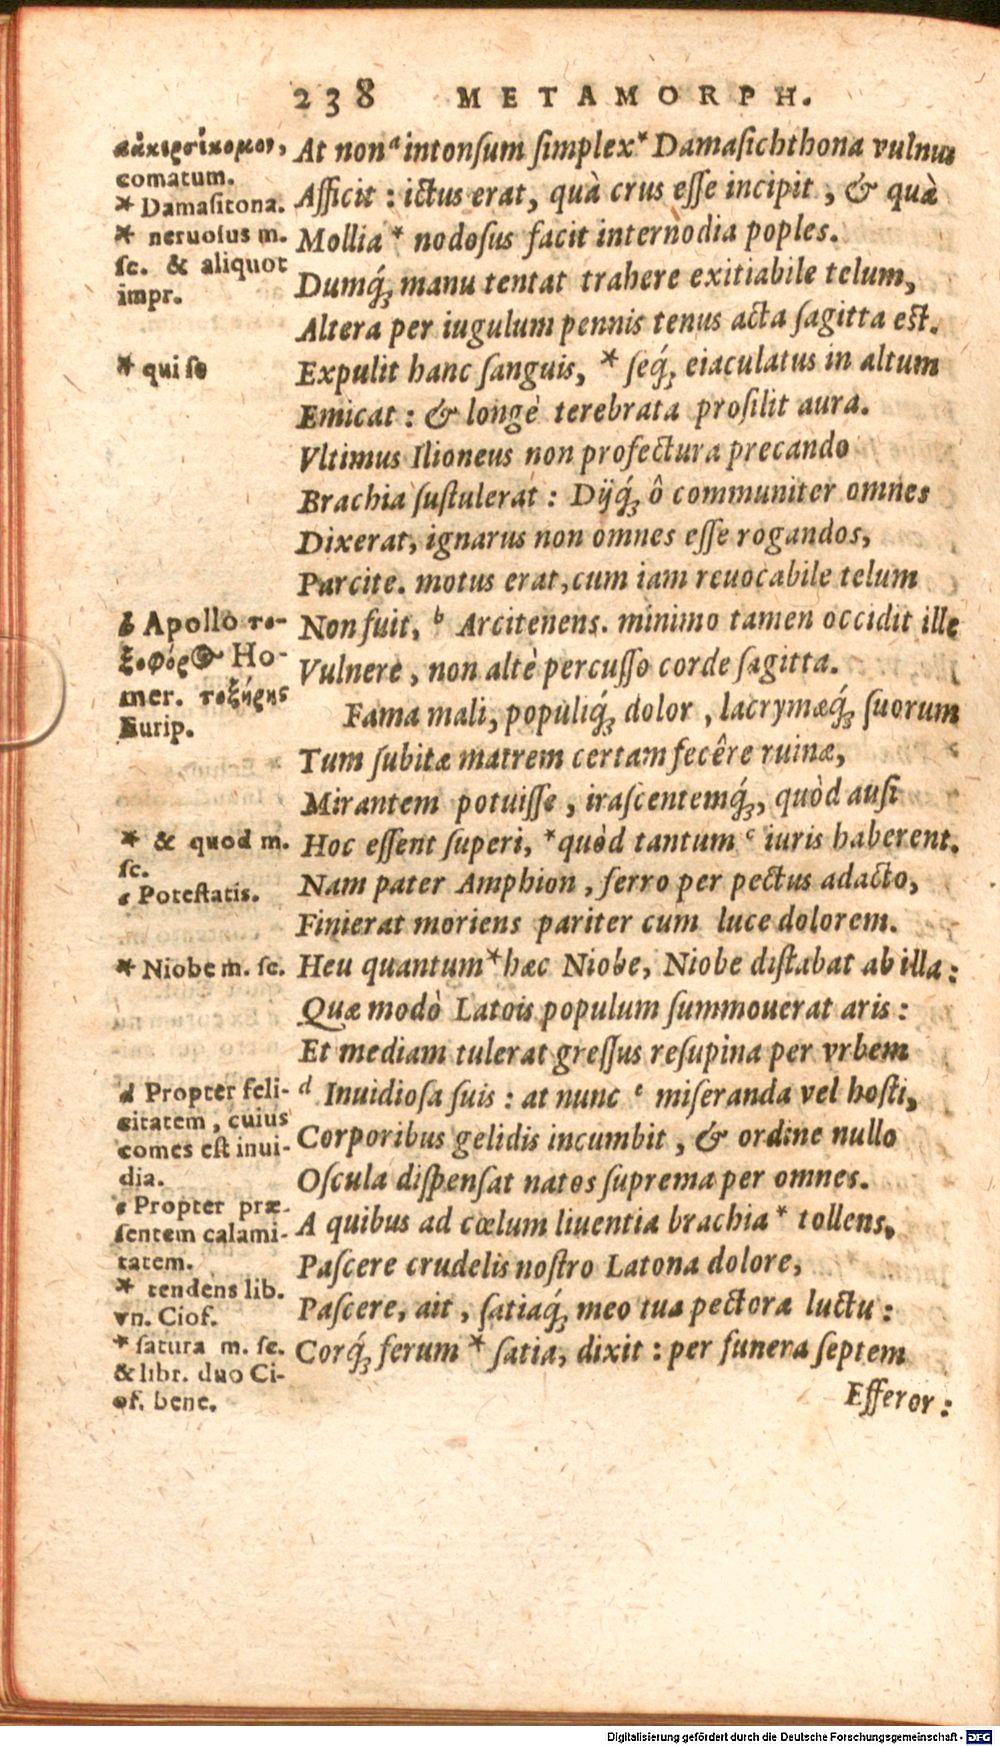 238 METAMORPH.
At non a intonſum ſimplex * Damaſichthona vulnus
Afficit : ictus erat, quà crus eſſe incipit , & quà
Mollia * nodoſus facit internodia poples.
Dumq́; manu tentat trahere exitiabile telum,
Altera per iugulum pennis tenus acta ſagitta est.
Expulit hanc ſanguis, * ſeq́; eiaculatus in altum
Emicat : & longè terebrata proſilit aura.
Vltimus Ilioneus non profectura precando
Brachia ſuſtulerat : Dijq́; ô communiter omnes
Dixerat, ignarus non omnes eſſe rogandos,
Parcite. motus erat, cum iam reuocabile telum
Non fuit, b Arcitenens. minimo tamen occidit ille
Vulnere , non altè percuſſo corde ſagitta.
Fama mali, populiq́; dolor , lacrymæq́; ſuorum
Tum ſubitæ matrem certam fecêre ruinæ,
Mirantem potuiſſe , iraſcentemq́;, quòd auſi
Hoc eſſent ſuperi, * quòd tantum c iuris haberent.
Nam pater Amphion , ferro per pectus adacto,
Finierat moriens pariter cum luce dolorem.
Heu quantum * hæc Niobe, Niobe diſtabat ab illa :
Quæ modò Latois populum ſummouerat aris :
Et mediam tulerat greſſus reſupina per vrbem
d Inuidioſa ſuis : at nunc e miſeranda vel hoſti,
Corporibus gelidis incumbit , & ordine nullo
Oſcula diſpenſat natos ſuprema per omnes.
A quibus ad cœlum liuentia brachia * tollens,
Paſcere crudelis noſtro Latona dolore,
Paſcere, ait , ſatiaq́; meo tua pectora luctu :
Corq́; ferum * ſatia, dixit : per funera ſeptem
Efferor :
comatum.
* Damaſitona.
* neruoſus m.
ſc. & aliquot
impr.
* qui ſe
b Apollo το-
ξοφόρος Ho-
mer. τοξήρης
Eurip.
* & quod m.
ſc.
c Poteſtatis.
* Niobe m. ſc.
d Propter feli-
citatem , cuius
comes eſt inui-
dia.
e Propter præ-
ſentem calami-
tatem.
* tendens lib.
vn. Cioſ.
* ſatura m. ſc.
& libr. duo Ci-
oſ. bene.
Digitalisierung gefördert durch die Deutsche Forschungsgemeinschaft - DFG